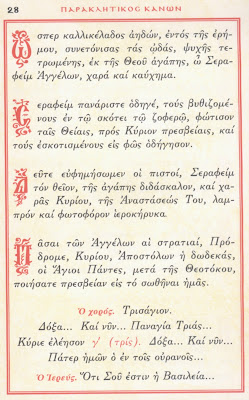 28 ΠΑΡΑΚΛΗΤΙΚΟΣ ΚΑΝΩΝ
Ὥσπερ καλλικέλαδος ἀηδών, ἐντός τῆς ἐρή-
μου, συνετόνισας τάς ᾠδάς, ψυχῆς τε-
τρωμένης, ἐκ τῆς Θεοῦ ἀγάπης, ὦ Σερα-
φείμ Ἀγγέλων, χαρά καί καύχημα.
Σεραφείμ πανάριστε ὁδηγέ, τούς βυθιζομέ-
νους ἐν τῷ σκότει τῷ ζοφερῷ, φώτισον
ταῖς Θείαις, πρός Κύριον πρεσβείαις, καί
τούς ἐσκοτισμένους εἰς φῶς ὁδήγησον.
Δεῦτε εὐφημήσωμεν οἱ πιστοί, Σεραφείμ
τόν θεῖον, τῆς ἀγάπης διδάσκαλον, καί χα-
ρᾶς Κυρίου, τῆς Ἀναστάσεώς Του, λαμ-
πρόν καί φωτοφόρον ἱεροκήρυκα.
Πᾶσαι τῶν Ἀγγέλων αἱ στρατιαί, Πρό-
δρομε, Κυρίου, Ἀποστόλων ἡ δωδεκάς,
οἱ Ἅγιοι Πάντες, μετά τῆς Θεοτόκου,
ποιήσατε πρεσβείαν εἰς τό σωθῆναι ἡμᾶς.
Ὁ χορός. Τρισάγιον.
Δόξα... Καί νῦν... Παναγία Τριάς...
Κύριε ἐλέησον γ΄ (τρίς). Δόξα... Καί νῦν...
Πάτερ ἡμῶν ὁ ἐν τοῖς οὐρανοῖς...
Ὁ Ἱερεύς. Ὅτι Σοῦ ἐστιν ἡ Βασιλεία...